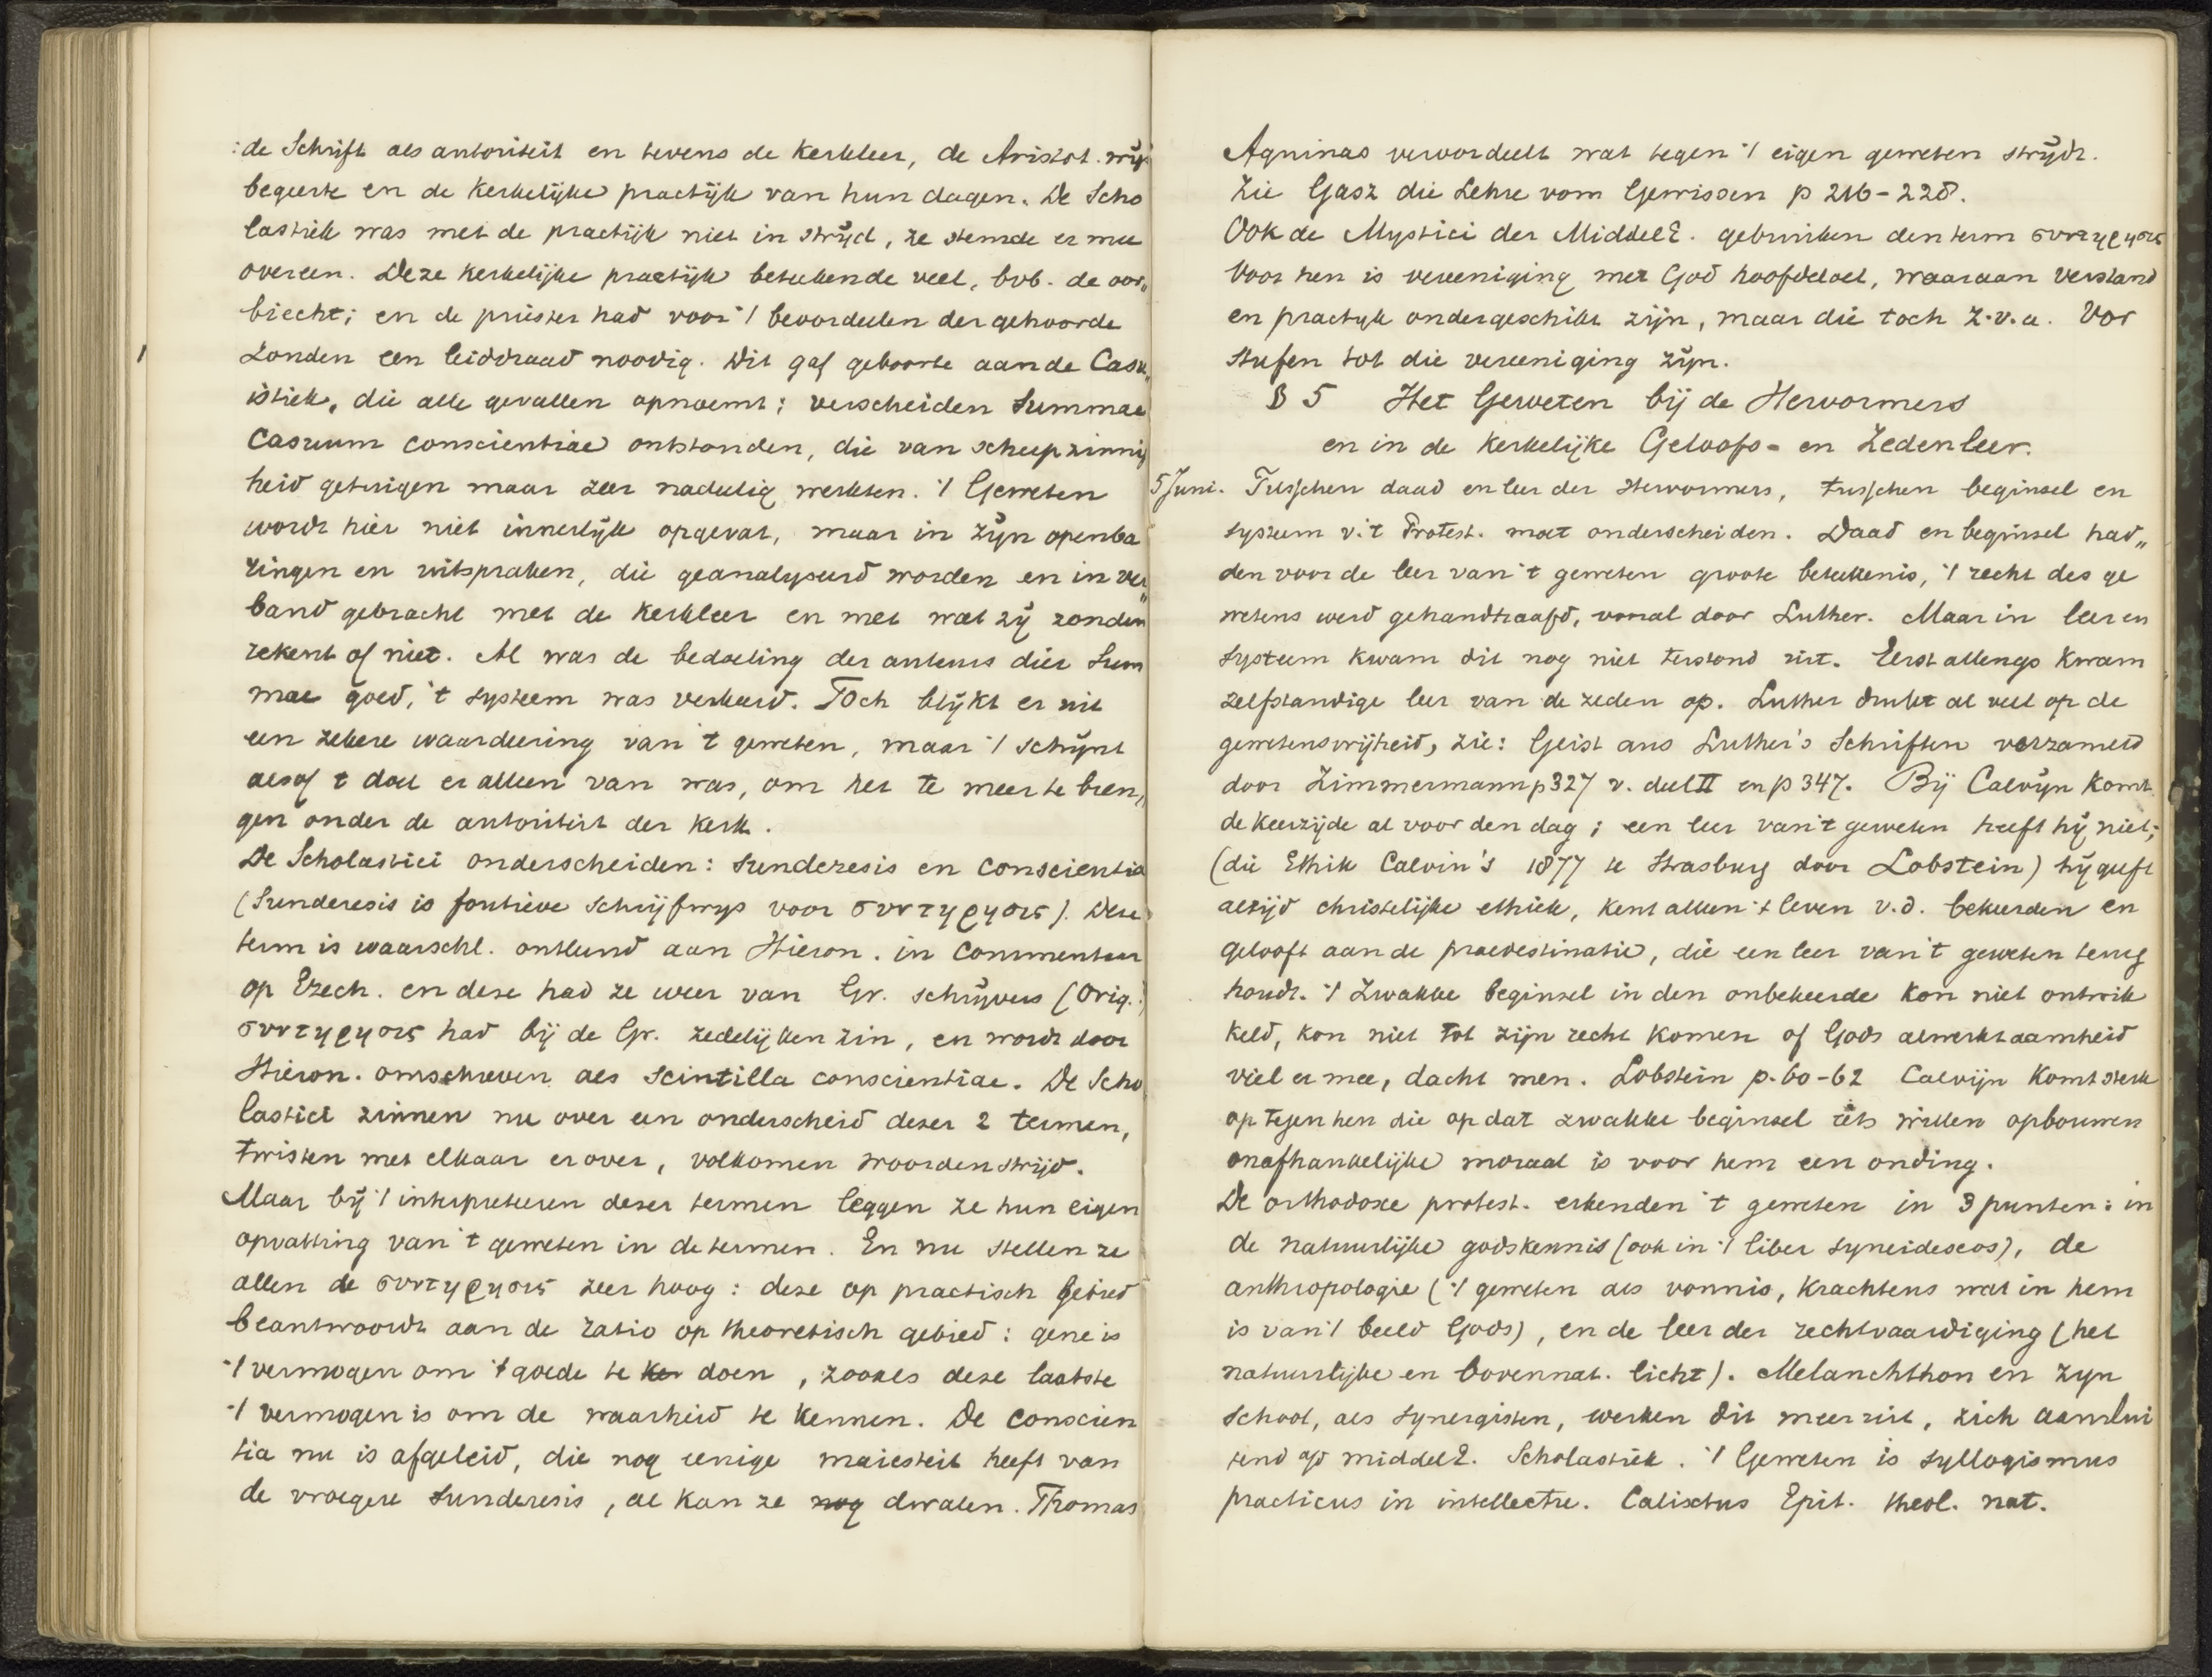 : de Schrift als autoriteit en tevens de Kerkleer, de Aristot. wijs
begeerte en de Kerkelijke practijk van hun dagen. De Scho
lastiek was met de practijk niet in strijd, ze stemde er mee
overeen. Deze Kerkelijke practijk beteekende veel, bvb. de oor„
biecht; en de priester had voor 't beoordeelen der gehoorde
Zonden een leiddraad noodig. Dit gaf geboorte aan de Casu„
istiek, die alle gevallen opnoemt; verscheiden Summae
Casuum conscientiae ontstonden, die van scherpzinnig
heid getuigen maar zeer nadeelig werkten. 't Geweten
wordt hier niet innerlijk opgevat, maar in zijn openba
ringen en uitspraken, die geanalyseerd worden en in ver„
band gebracht met de Kerkleer en met wat zij zonden
rekent of niet. Al was de bedoeling der auteurs dier Sum
mae goed, 't systeem was verkeerd. Toch blijkt er uit
een zekere waardeering van 't geweten, maar 't schijnt
alsof t doel er alleen van was, om het te meer te bren„
gen onder de autoriteit der Kerk.
De Scholastici onderscheiden: Sunderesis en Conscientia
(Sunderesis is foutieve schrijfwijs voor συντηρησις). Deze
term is waarschl. ontleend aan Hieron. in Commentaar
op Ezech. en deze had ze weer van Gr. schrijvers (Orig.)
συντηρησις had bij de Gr. zedelijken zin, en wordt door
Hieron. omschreven als scintilla conscientiae. De Scho
lastici zinnen nu over een onderscheid dezer 2 termen,
twisten met elkaar erover, volkomen woordenstrijd.
Maar bij 't interpreteeren dezer termen leggen ze hun eigen
opvatting van 't geweten in de termen. En nu stellen ze
allen de συντηρησις zeer hoog: deze op practisch gebied
beantwoordt aan de ratio op theoretisch gebied: gene is
't vermogen om 't goede te ken doen, zooals deze laatste
't vermogen is om de waarheid te Kennen. De conscien
tia nu is afgeleid, die nog eenige maiesteit heeft van
de vroegere Sunderesis, al kan ze nog dwalen. Thomas
Aquinas veroordeelt wat tegen 't eigen geweten strijdt.
Zie Gasz die Lehre vom Gewissen p 216-228.
Ook de Mystici der MiddelE. gebruiken den term συντηρησις
Voor hen is vereeniging met God hoofddoel, waaraan verstand
en practijk ondergeschikt zijn, maar die toch z.v.a. Vor
stufen tot die vereeniging zijn.
§ 5 Het Geweten bij de Hervormers
en in de Kerkelijke Geloofs- en Zedenleer.
5 Juni. Tusschen daad en leer der Hervormers, tusschen beginsel en
systeem v.'t Protest. moet onderscheiden. Daad en beginsel had„
den voor de leer van 't geweten groote beteekenis, 't recht des ge
wetens werd gehandhaafd, vooral door Luther. Maar in leer en
systeem kwam dit nog niet terstond uit. Eerst allengs kwam
zelfstandige leer van de zeden op. Luther drukt al veel op de
gewetensvrijheid, zie: Geist aus Luther's Schriften verzameld
door Zimmermann p 327 v. deel II en p 347. Bij Calvijn Komt
de Keerzijde al voor den dag; een leer van 't geweten heeft hij niet;
(die Ethik Calvin's 1877 te Strasburg door Lobstein) hij geeft
altijd christelijke ethiek, kent alleen 't leven v.d. bekeerden en
gelooft aan de praedestinatie, die een leer van 't geweten terug
houdt. 't Zwakke beginsel in den onbekeerde kon niet ontwik
keld, kon niet tot zijn recht komen of Gods alwerkzaamheid
viel er mee, dacht men. Lobstein p. 60-62 Calvijn Komt sterk
op tegen hen die op dat zwakke beginsel iets willen opbouwen
onafhankelijke moraal is voor hem een onding.
De orthodoxe protest. erkenden 't geweten in 3 punten: in
de natuurlijke godskennis (ook in 't liber syneideseos), de
anthropologie ('t geweten als vonnis, krachtens wat in hem
is van 't beeld Gods), en de leer der rechtvaardiging (het
natuurlijke en bovennat. licht). Melanchthon en zijn
school, als synergisten, werken dit meer uit, zich aanslui
tend a/d middelE. Scholastiek. 't Geweten is syllogismus
practicus in intellectu. Calixtus Epit. theol. nat.